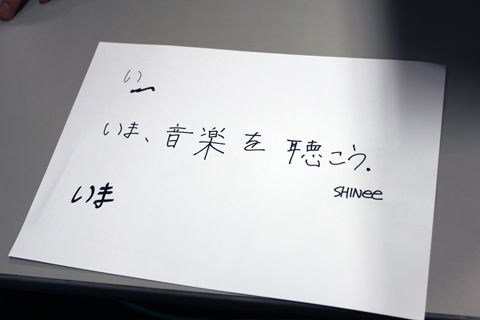 い
いま、音楽を聴こう.
いま
SHINee